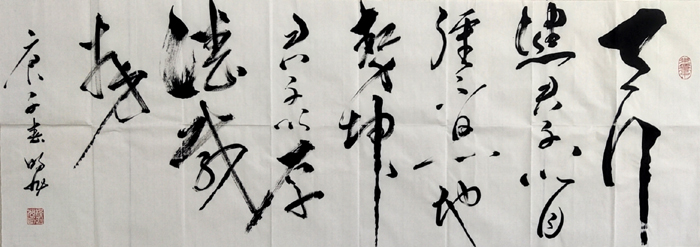 天行
健君子以自
强不息地
势坤
君子以厚
德载
物
庚子春